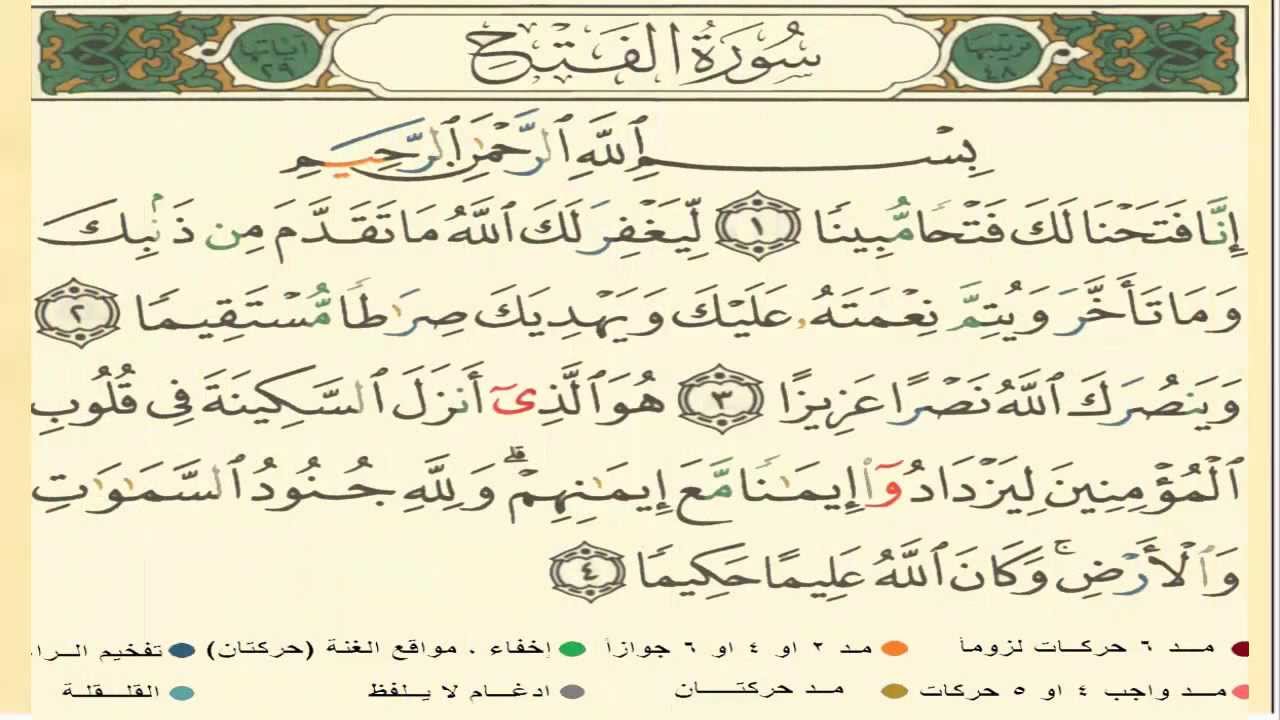 سُورَةُ الفَتْحِ
ترتيبها ٤٨
آياتها ٢٩
بِسْمِ ٱللَّهِ ٱلرَّحْمَٰنِ ٱلرَّحِيمِ
إِنَّا فَتَحْنَا لَكَ فَتْحًا مُّبِينًا ١ لِّيَغْفِرَ لَكَ ٱللَّهُ مَا تَقَدَّمَ مِن ذَنۢبِكَ
وَمَا تَأَخَّرَ وَيُتِمَّ نِعْمَتَهُۥ عَلَيْكَ وَيَهْدِيَكَ صِرَٰطًا مُّسْتَقِيمًا ٢
وَيَنصُرَكَ ٱللَّهُ نَصْرًا عَزِيزًا ٣ هُوَ ٱلَّذِىٓ أَنزَلَ ٱلسَّكِينَةَ فِى قُلُوبِ
ٱلْمُؤْمِنِينَ لِيَزْدَادُوٓا۟ إِيمَٰنًا مَّعَ إِيمَٰنِهِمْ ۗ وَلِلَّهِ جُنُودُ ٱلسَّمَٰوَٰتِ
وَٱلْأَرْضِ ۚ وَكَانَ ٱللَّهُ عَلِيمًا حَكِيمًا ٤
مـد ٦ حركـات لزوماً مد ٢ او ٤ او ٦ جوازاً إخفاء ، مواقع الغنة (حركتان) تفخيم الـرا
مـد واجب ٤ او ٥ حركات مـد حركتـان ادغـام لا يـلفظ القلـقلة